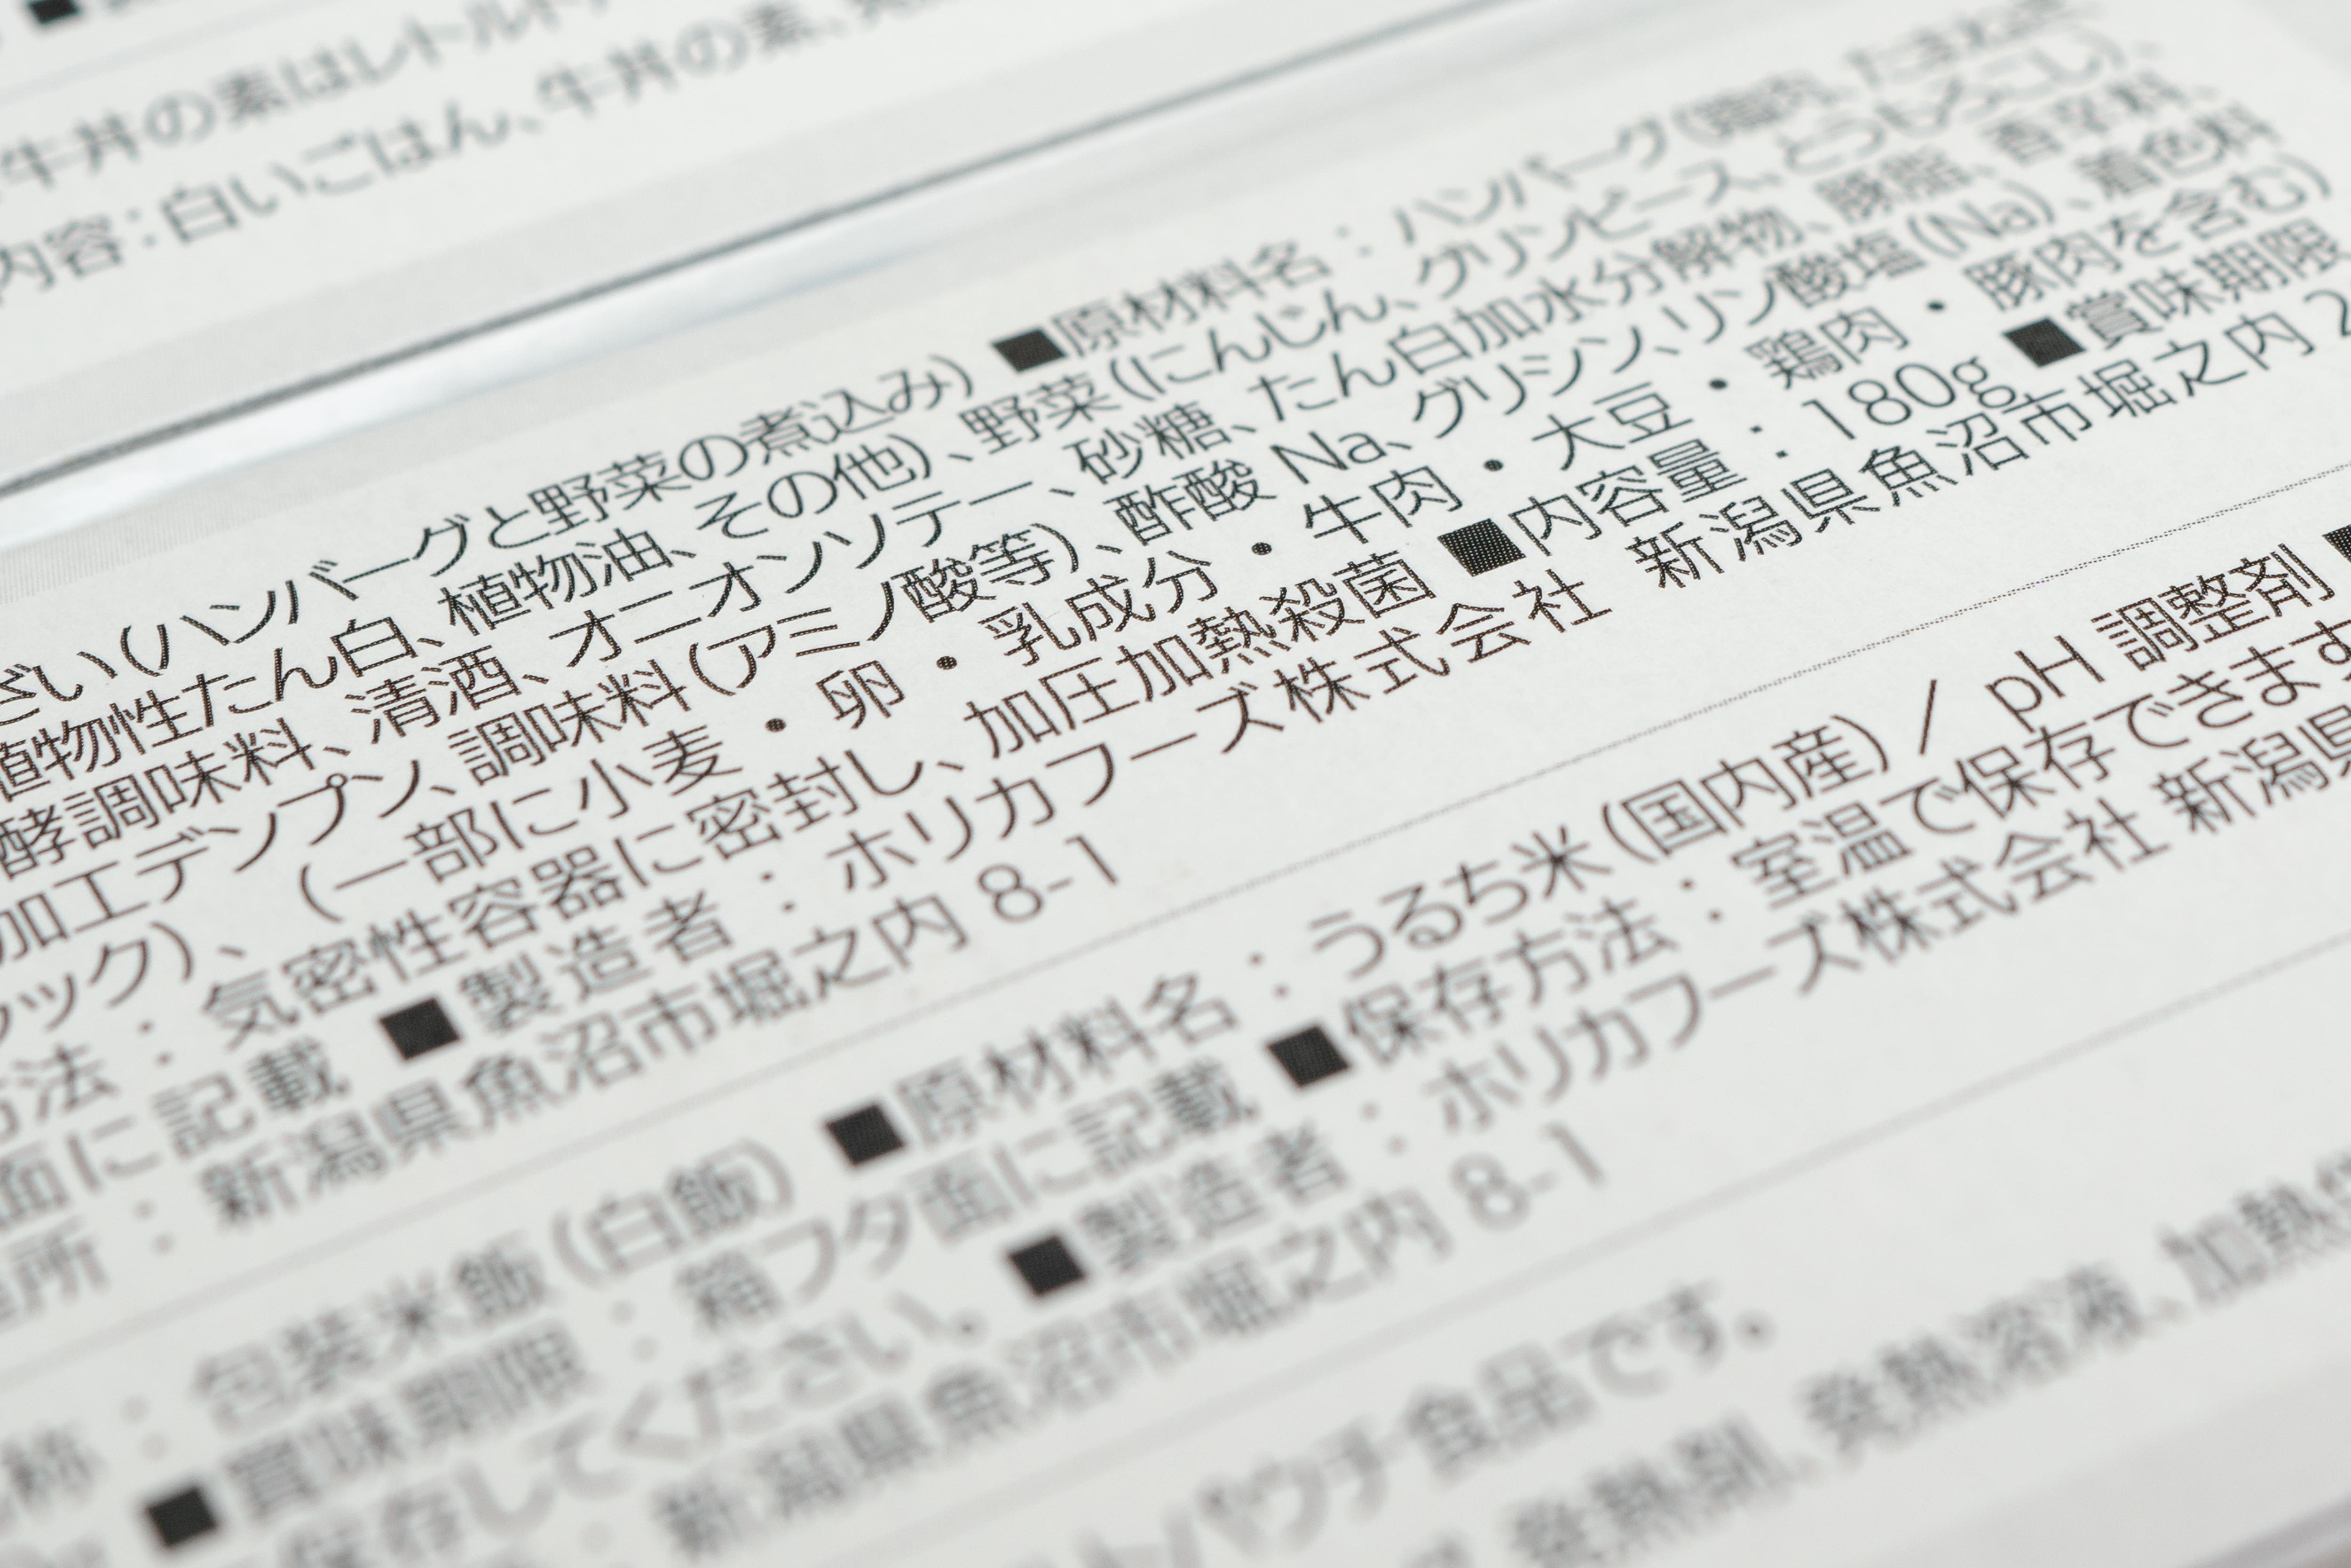 牛丼の素はレトルト
内容：白いごはん、牛丼の素、
ざい（ハンバーグと野菜の煮込み） ■原材料名：ハンバーグ（鶏肉、たまねぎ、
植物性たん白、植物油、その他）、野菜（にんじん、グリンピース、とうもろこし）、
酵調味料、清酒、オニオンソテー、砂糖、たん白加水分解物、豚脂、香辛料、
加工デンプン、調味料（アミノ酸等）、酢酸 Na、グリシン、リン酸塩（Na）、着色料
ラック）、（一部に小麦・卵・乳成分・牛肉・大豆・鶏肉・豚肉を含む）
方法：気密性容器に密封し、加圧加熱殺菌 ■内容量：180g ■賞味期限
面に記載 ■製造者：ホリカフーズ株式会社 新潟県魚沼市堀之内 2
所：新潟県魚沼市堀之内 8-1
称：包装米飯（白飯） ■原材料名：うるち米（国内産）／ pH 調整剤 ■
■賞味期限：箱フタ面に記載 ■保存方法：室温で保存できます
保存してください。 ■製造者：ホリカフーズ株式会社 新潟県
：新潟県魚沼市堀之内 8-1
パウチ食品です。
発熱剤、発熱溶液、加熱